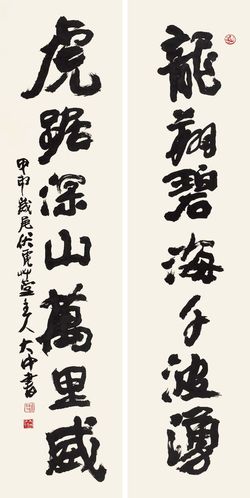 龍翔碧海千波涌
虎踞深山萬里威
甲申歲尾伏虎草堂主人大中書